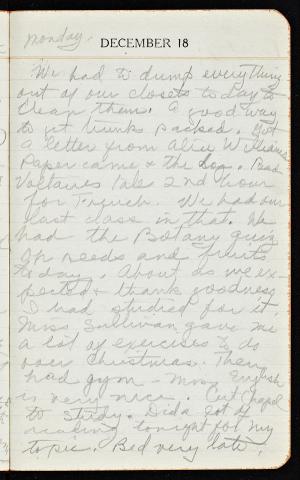 Monday.
DECEMBER 18
We had to dump everything
out of our closets today to
clean them. A good way
to get trunks packed. Got
a letter from Alice Williams
Paper came & the log. Read
Voltaires tale 2nd hour
for French. We had our
last class in that. We
had the Botany quiz
on seeds and fruits
today. About as we ex-
pected & thank goodness
I had studied for it.
Miss Sullivan gave me
a lot of exercises to do
over Christmas. Then
had gym - Miss English
is very nice. Cut chapel
to study. Did a lot of
reading tonight for my
topic. Bed very late.